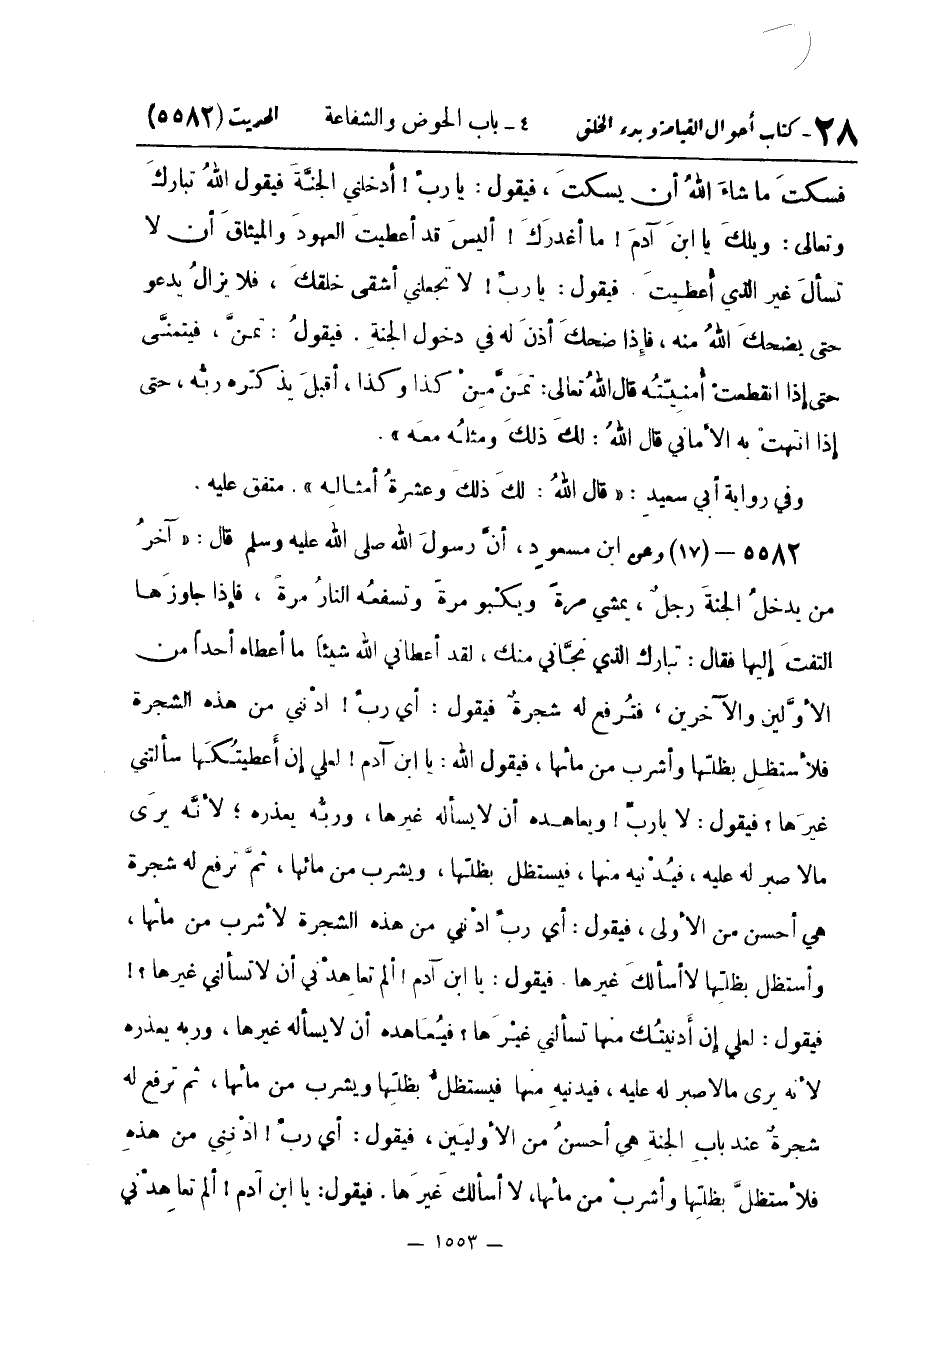 ٢٨ - كتاب أحوال القيامة وبدء الخلق ٤ - باب الحوض والشفاعة الحديث (٥٥٨٢)
فسكتَ ما شاءَ اللهُ أن يسكتَ ، فيقول : يا ربِّ ! أدخلني الجنَّةَ فيقول اللهُ تباركَ
وتعالى : ويلكَ يا ابنَ آدمَ ! ما أغدرَكَ ! أليسَ قد أعطيتَ العهودَ والميثاقَ أن لا
تسألَ غير الذي أُعطيتَ . فيقول : يا ربِّ ! لا تجعلني أشقى خلقكَ ، فلا يزالُ يدعو
حتى يضحكَ اللهُ منه ، فإِذا ضحكَ أذنَ له في دخول الجنةِ . فيقولُ : تمنَّ ، فيتمنَّى
حتى إذا انقطعتْ أُمنيّتُه قال اللهُ تعالى : تمنَّ مِنْ كذا وكذا ، أقبلَ يذكّره ربُّه ، حتى
إذا انتهتْ به الأماني قال اللهُ : لكَ ذلكَ ومثلُه معَه » .
وفي رواية أبي سعيدٍ : « قال اللهُ : لكَ ذلكَ وعشرةُ أمثالِه » . متفق عليه .
٥٥٨٢ – (١٧) وعن ابن مسعودٍ ، أنَّ رسولَ الله صلى الله عليه وسلم قال : « آخرُ
من يدخلُ الجنةَ رجلٌ ، يمشي مرةً ويكبو مرةً وتسفعُه النارُ مرةً ، فإذا جاوزَها
التفتَ إليها فقال : تبارك الذي نجَّاني منك ، لقد أعطاني الله شيئاً ما أعطاه أحداً من
الأوَّلين والآخرين ، فتُرفع له شجرةٌ فيقول : أي ربِّ ! ادْنني من هذه الشجرة
فلأستظل بظلّها وأشرب من مائها ، فيقول الله : يا ابن آدم ! لعلي إن أَعطيتُكَها سألتني
غيرَها ؟ فيقول : لا يا ربِّ ! ويعاهده أن لا يسأله غيرها ، وربُّه يعذره ؛ لأنَّه يرَى
مالا صبر له عليه ، فيُدْنيه منها ، فيستظل بظلّها ، ويشرب من مائها ، ثمَّ ترفع له شجرة
هي أحسن من الأولى ، فيقول : أي ربِّ ادْنني من هذه الشجرة لأشرب من مائها ،
وأستظل بظلّها لا أسألكَ غيرها . فيقول : يا ابن آدم ! ألم تعاهدْني أن لا تسألني غيرها ؟ !
فيقول : لعلي إن أَدنيتُك منها تسألني غيْرَها ؟ فيُعاهده أن لا يسأله غيرها ، وربه يعذره
لأنه يرى مالا صبر له عليه ، فيدنيهِ منها فيستظلُّ بظلّها ويشرب من مائها ، ثم ترفع له
شجرةٌ عند بابِ الجنةِ هي أحسنُ من الأوليَين ، فيقول : أي ربِّ ! ادْنِني من هذهِ
فلأستظلَّ بظلّها وأشربْ من مائها، لا أسألك غيرَها . فيقول: يا ابن آدم ! ألم تعاهدْني
– ١٥٥٣ –